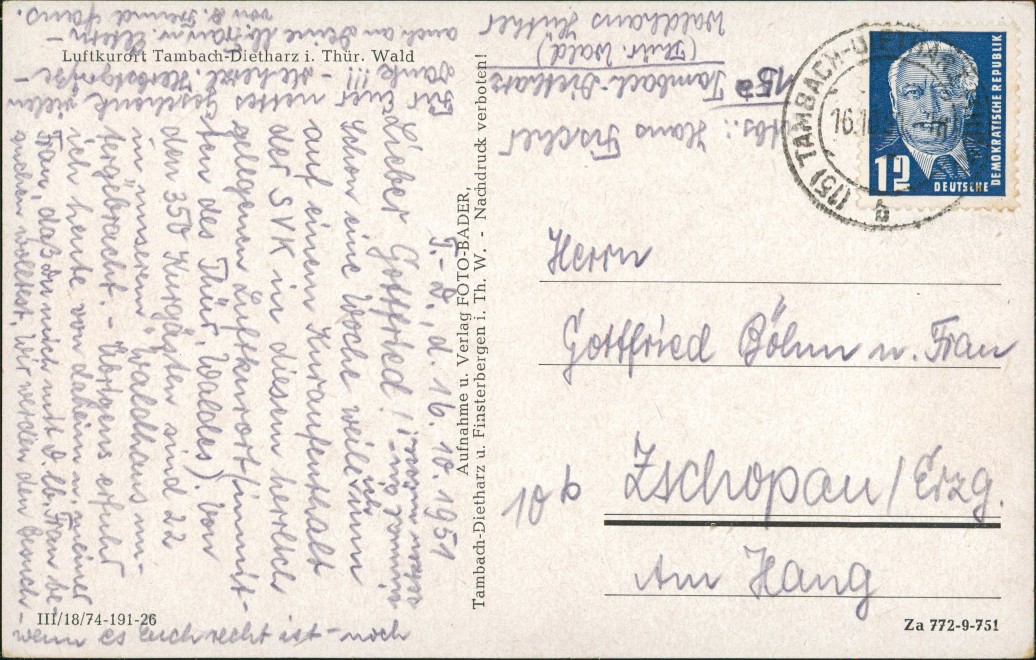 Luftkurort Tambach-Dietharz i. Thür. Wald
T.-D., d. 16. 10. 1951
Lieber Gottfried!
Schon eine Woche weile nun
ich
auf einen Kuraufenthalt
der SVK in diesem herrlich
gelegenen Luftkurort (inmit-
ten des Thür. Waldes). Von
den 350 Kurgästen sind 22
in unserem "Waldhaus" un-
tergebracht. - Übrigens erfuhr
ich heute von daheim u. meiner
Frau, daß Du mich mit d. lb. Frau be-
suchen wolltest. Wir werden den Besuch -
wenn es Euch recht ist - noch
Für Euer nettes Geschenk vielen
Dank !!! - Herzl. Herbstgrüße -
auch an Deine lb. Eltern -
von D. Freund Hans.
Aufnahme u. Verlag FOTO-BADER,
Tambach-Dietharz u. Finsterbergen i. Th. W. - Nachdruck verboten!
Abs.: Hans Fischer
15a Tambach-Dietharz
(Thür. Wald)
Waldhaus
(15) TAMBACH-DIETHARZ
16.10
b
12
DEUTSCHE
DEMOKRATISCHE REPUBLIK
Herrn
Gottfried Böhm u. Frau
10b Zschopau/Erzg.
Am Hang
III/18/74-191-26
Za 772-9-751